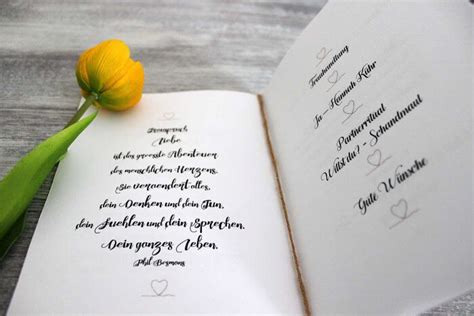 Trauspruch
Liebe
ist das groesste Abenteuer
des menschlichen Herzens,
Sie veraendert alles,
dein Denken und dein Tun,
dein Fuehlen und dein Sprechen,
Dein ganzes Leben,
Phil Bosmans
Trauhandlung
Ja – Hannah Kühr
Partnerritual
Willst du? - Schandmaul
Gute Wünsche